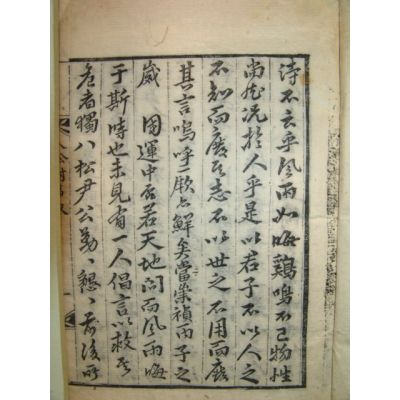 詩不云乎風雨如晦鷄鳴不已物性
尚然況於人乎是以君子不以人之
不知而廢其志不以世之不用而廢
其言嗚呼厥亦鮮矣當崇禎丙子之
歲 國運中否若天地閉而風雨晦
于斯時也未見有一人倡言以救其
危者獨八松尹公勤〻懇〻前後所